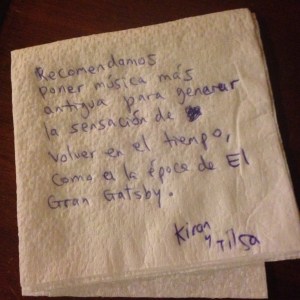 Recomendamos
poner música más
antigua para generar
la sensación de
volver en el tiempo,
como a la época de El
Gran Gatsby.
Kiran
y Tilsa